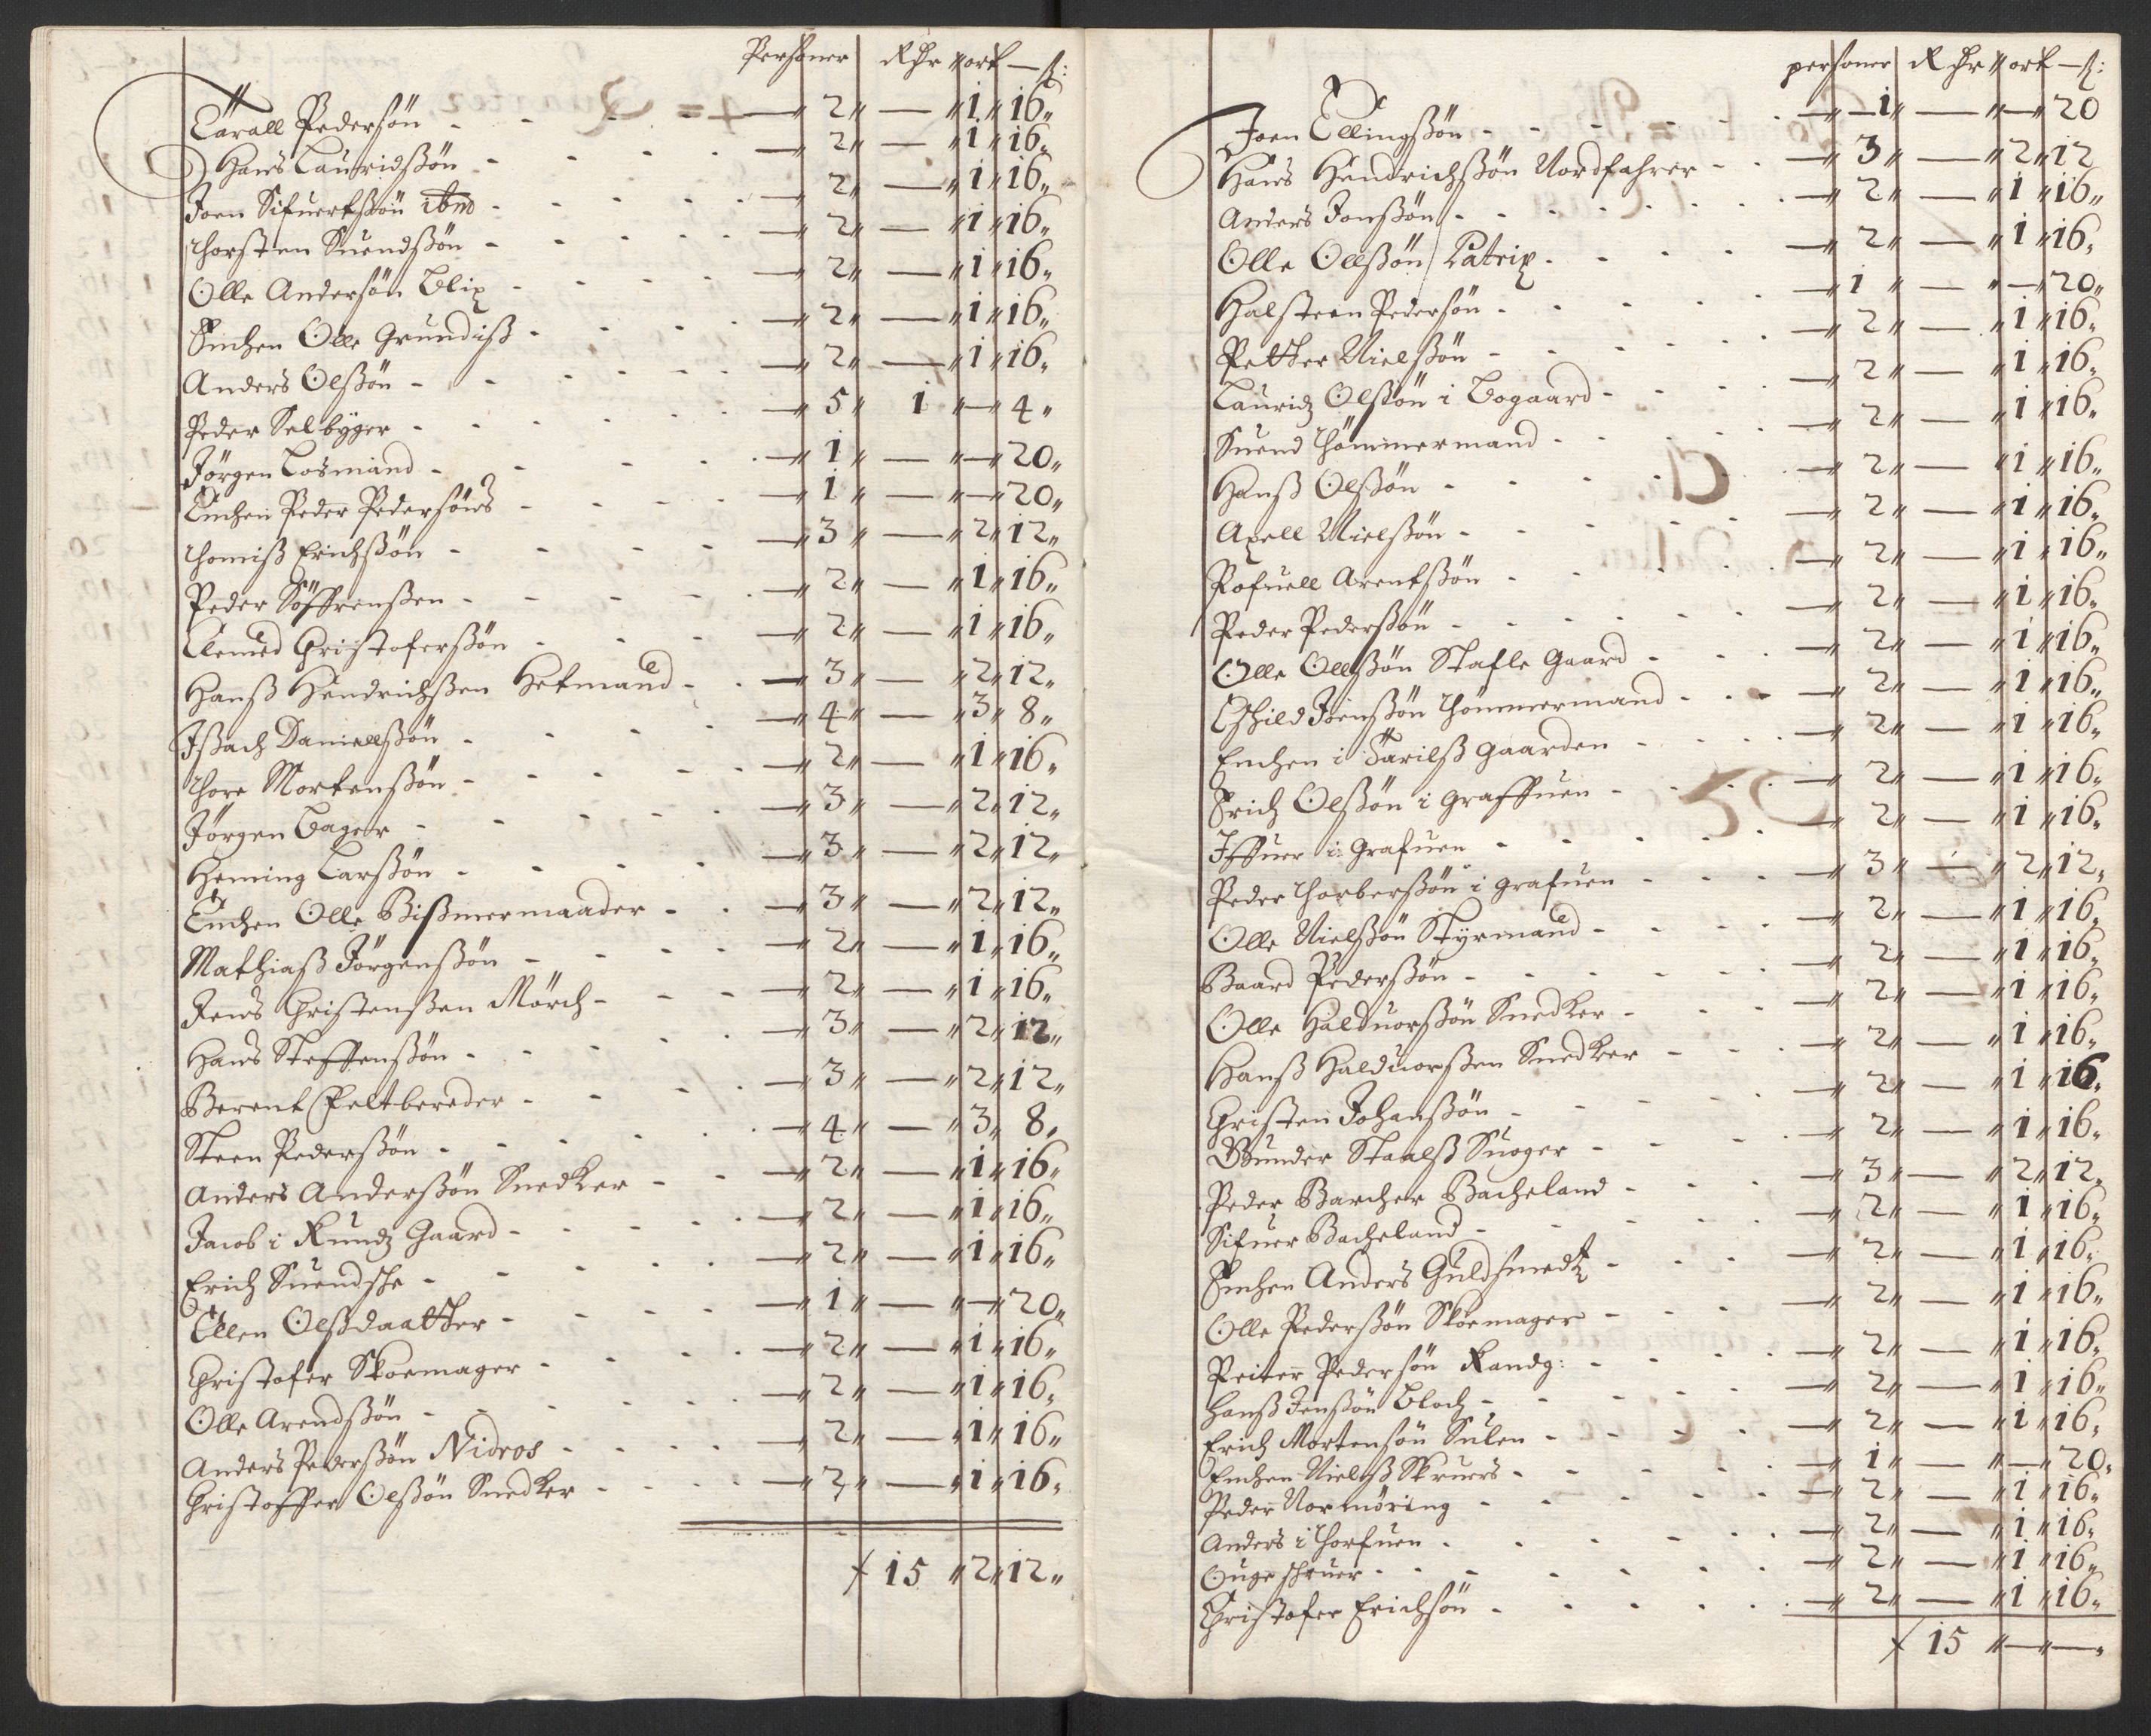 Personer Rdr ort ß:
Carall Pedersøn - 2 — 1 16
Hans Lauridsßøn - 2 — 1 16
Joen Sifuertsßøn ibm - 2 — 1 16
Thorsten Suendsßøn - 2 — 1 16
Olle Andersøn Blix - 2 — 1 16
Enchen Olle Grundiß - 2 — 1 16
Anders Olsßøn - 2 — 1 16
Peder Selbyger - 5 1 — 4
Jørgen Losmand - 1 — — 20
Enchen Peder Pedersøns - 1 — — 20
Thomiß Erichsßøn - 3 — 2 12
Peder Søffrensßen - 2 — 1 16
Clemed Christofersßøn - 2 — 1 16
Hanß Hendrichsßen Hetmand - 3 — 2 12
Jsach Daniellsßøn - 4 — 3 8
Thore Mortensßøn - 2 — 1 16
Jørgen Bager - 3 — 2 12
Heming Larsßøn - 3 — 2 12
Enchen Olle Bißmermaader - 3 — 2 12
Mathiaß Jørgensßøn - 2 — 1 16
Jens Christensßen Mørch - 2 — 1 16
Hans Steffensßøn - 3 — 2 12
Berent Feltbereder - 3 — 2 12
Steen Pedersßøn - 4 — 3 8
Anders Andersßøn Snedker - 2 — 1 16
Jacob i Kundz Gaard - 2 — 1 16
Erich Suendsche - 2 — 1 16
Ellen Olsdaatter - 1 — — 20
Christofer Skoemager - 2 — 1 16
Olle Arendsßøn - 2 — 1 16
Anders Pedersßøn Nidros - 2 — 1 16
Christoffer Olsßøn Snedker - 2 — 1 16
15 2 12
personer Rdr ort ß:
Joen Ellingsßøn - 1 — — 20
Hans Hendrichsßøn Nordfahrer - 3 — 2 12
Anders Jonsßøn - 2 — 1 16
Olle Ollsßøn Patrix - 2 — 1 16
Halsteen Pedersøn - 1 — — 20
Petter Nielsßøn - 2 — 1 16
Lauridz Olsßøn i Bogaard - 2 — 1 16
Suend Thømmermand - 2 — 1 16
Hanß Olsßøn - 2 — 1 16
Axell Nielsßøn - 2 — 1 16
Rofuell Arentsßøn - 2 — 1 16
Peder Pedersßøn - 2 — 1 16
Olle Ollsßøn Stafle Gaard - 2 — 1 16
Eschild Joensßøn Thømmermand - 2 — 1 16
Enchen i Carilß Gaarden - 2 — 1 16
Erich Olsßøn i Graffuen - 2 — 1 16
Iffuer i Grafuen - 2 — 1 16
Peder Thorbersßøn i Grafuen - 3 — 2 12
Olle Nielsßøn Styrmand - 2 — 1 16
Baard Pedersßøn - 2 — 1 16
Olle Halduorsßøn Snedker - 2 — 1 16
Hanß Halduorsßen Snedker - 2 — 1 16
Christen Johansßøn - 2 — 1 16
Gunder Staalß Suoger - 2 — 1 16
Peder Barcher Bacheland - 3 — 2 12
Sifuer Bacheland - 2 — 1 16
Enchen Anders Guldsmedtz - 2 — 1 16
Olle Pedersßøn Skoemager - 2 — 1 16
Peiter Pedersøn Randz: - 2 — 1 16
Hanß Jensßøn Bloch - 2 — 1 16
Erich Mortensøn Sulen - 2 — 1 16
Enchen Nielß Skruers - 1 — — 20
Peder Normøring - 2 — 1 16
Anders i Thorfuen - 2 — 1 16
Ouge - 2 — 1 16
Christofer Erichsøn - 2 — 1 16
15 — —